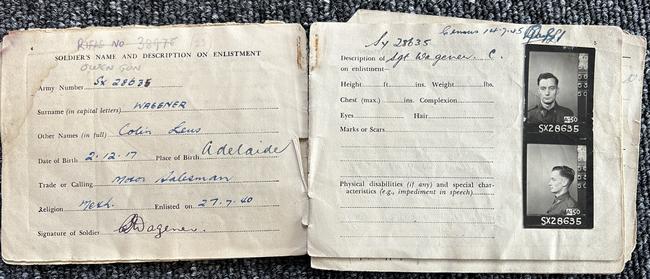 4
RIFLE NO 38975
SOLDIER'S NAME AND DESCRIPTION ON ENLISTMENT
OWEN GUN
Army Number SX 28635
Surname (in capital letters) WAGENER
Other Names (in full) Colin
Date of Birth 2.12.17 Place of Birth Adelaide
Trade or Calling Motor Salesman
Religion Meth. Enlisted on 27.7.40
Signature of Soldier Wagener.
Census 14.7.45
5
Sx 28635
Description of Sgt Wagener C.
on enlistment—
Height ft. ins. Weight lbs.
Chest (max.) ins. Complexion
Eyes Hair
Marks or Scars
Physical disabilities (if any) and special char-
acteristics (e.g., impediment in speech)
SX28635
SX28635